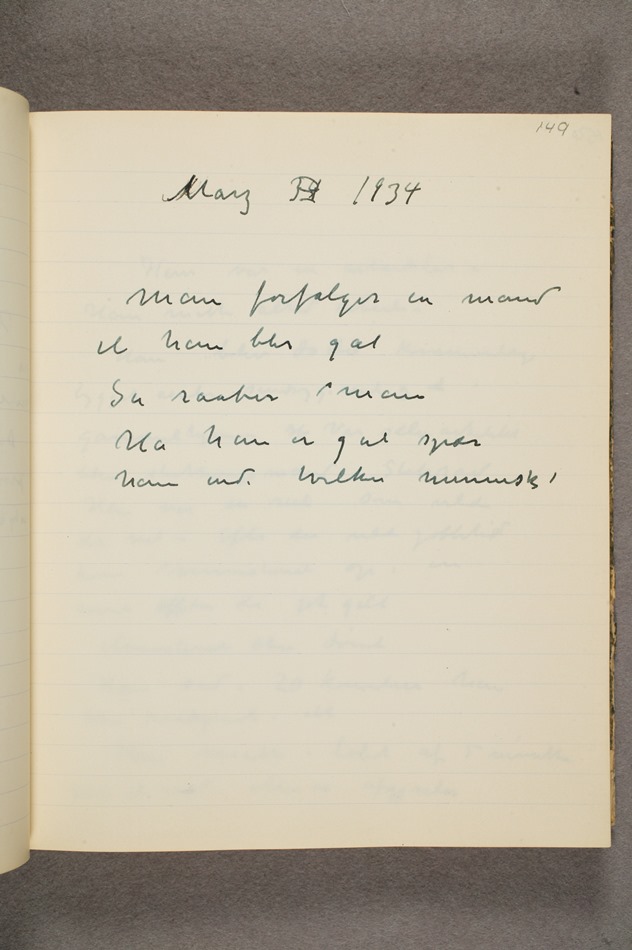 149
Marz 1934
Man forfølger en mand
til han blir gal
Så raaber man
Ha han er gal spær
ham ind. hvilken menneske!